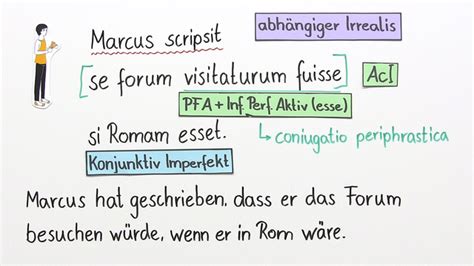 Marcus scripsit
abhängiger Irrealis
[se forum visitaturum fuisse] AcI
PFA + Inf. Perf. Aktiv (esse)
si Romam esset. ↳ coniugatio periphrastica
Konjunktiv Imperfekt
Marcus hat geschrieben, dass er das Forum
besuchen würde, wenn er in Rom wäre.